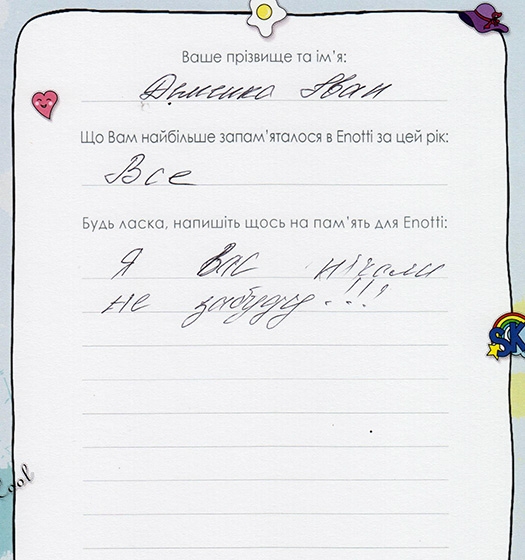 Ваше прізвище та ім'я:
Деменко Іван
Що Вам найбільше запам'яталося в Enotti за цей рік:
Все
Будь ласка, напишіть щось на пам'ять для Enotti:
Я Вас ніколи
не забуду!!!
SK
Cool